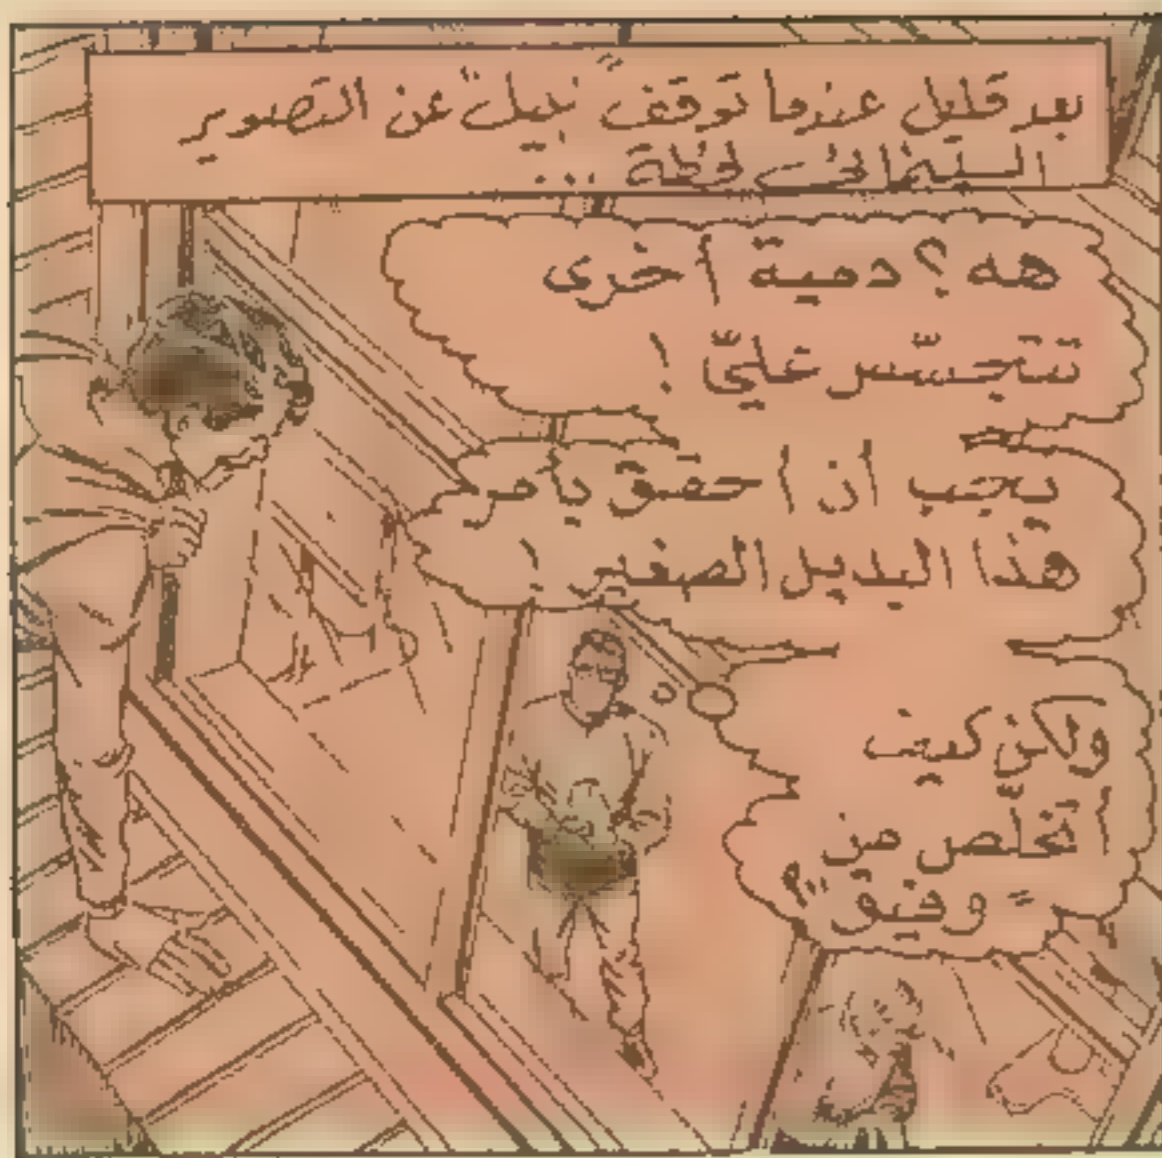 بعد قليل عندما توقف "نبيل" عن التصوير
السينمائي لحظة ...
هه ؟ دمية أخرى
تتجسّس عليّ !
يجب أن أحقق بأمر
هذا البديل الصغير !
ولكن كيف
أتخلّص من
"وفيق"؟